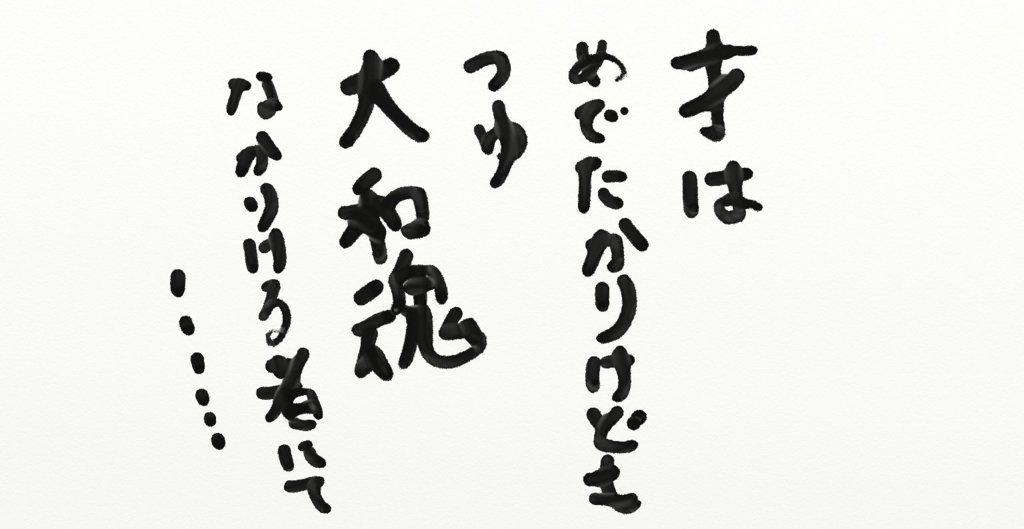 才は
めでたかりけども
つゆ
大和魂
なかりける者にて
……